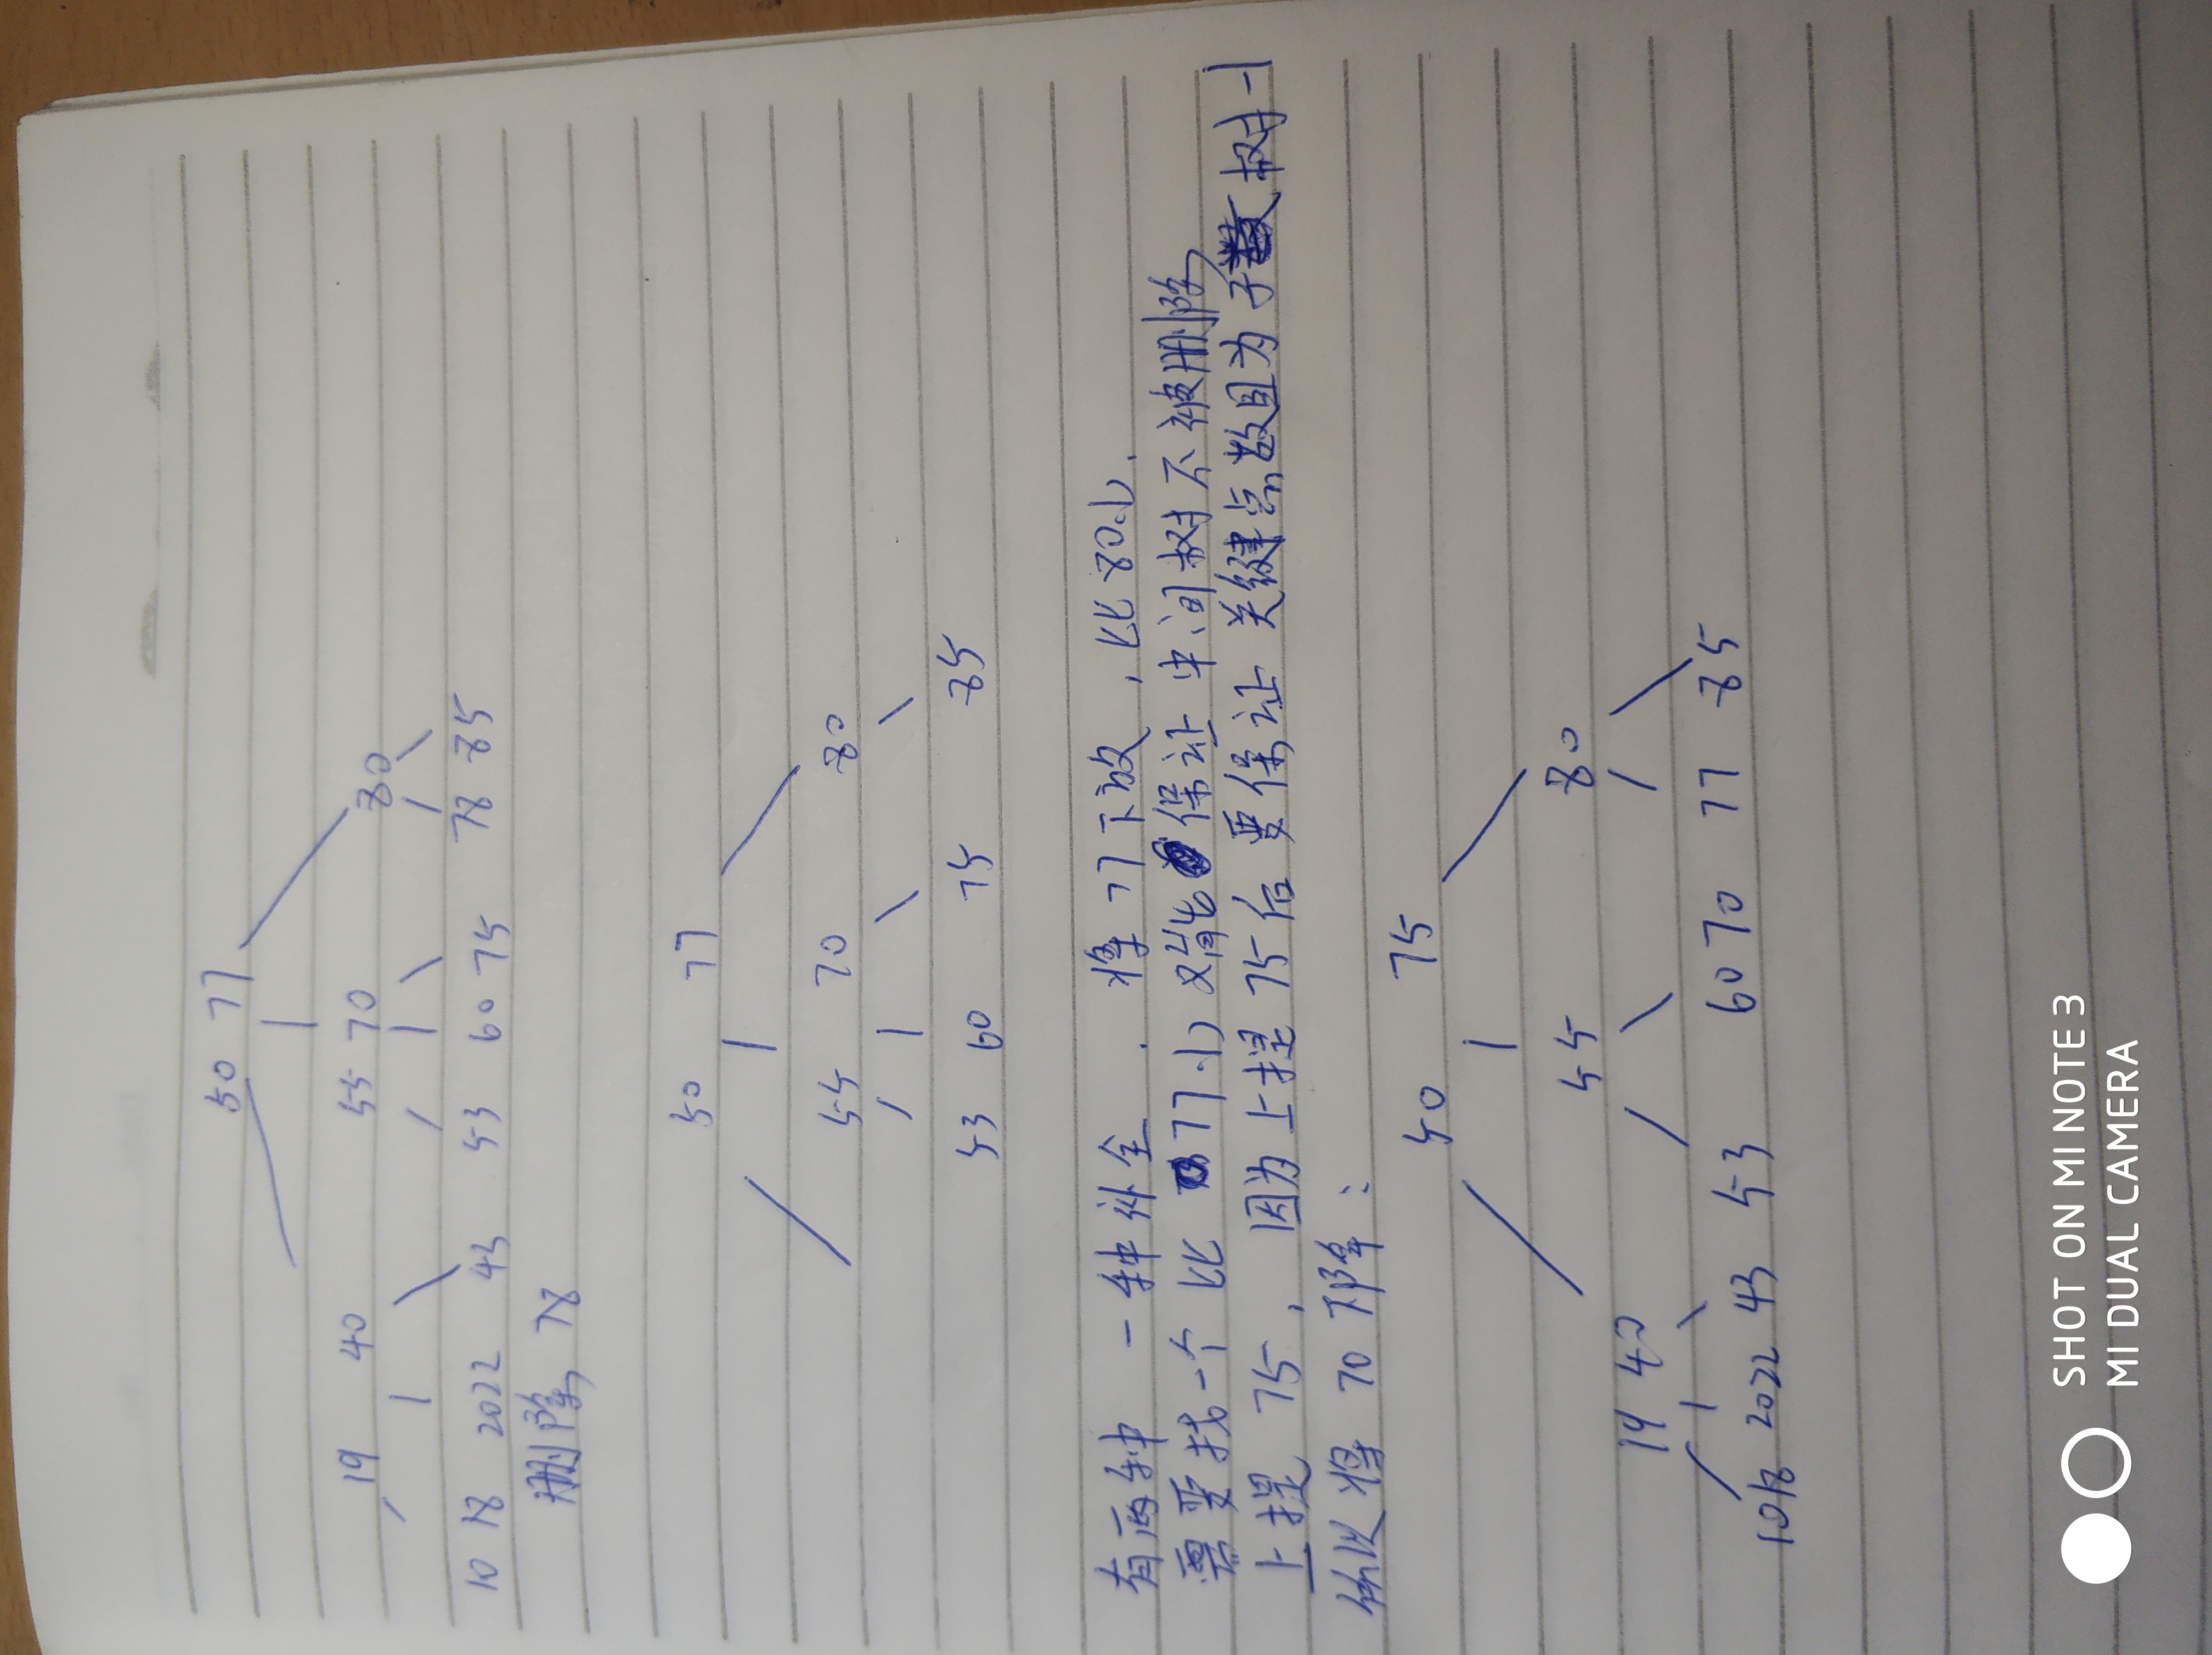 50 77
19 40 55 70 80
10 18 2022 43 53 60 75 78 85
删除 78
50 77
55 70 80
53 60 75 85
有两种 一种补全 . 将 77 下放 , 比 80小 .
需要找一个 比 77小 又能 保证 中间树不被删除
上提 75 , 因为上提 75 后 要保证 关键点数目为子数树-1
所以将 70 下降 :
50 75
19 40 55 80
10 18 2022 43 53 60 70 77 85
SHOT ON MI NOTE 3
MI DUAL CAMERA